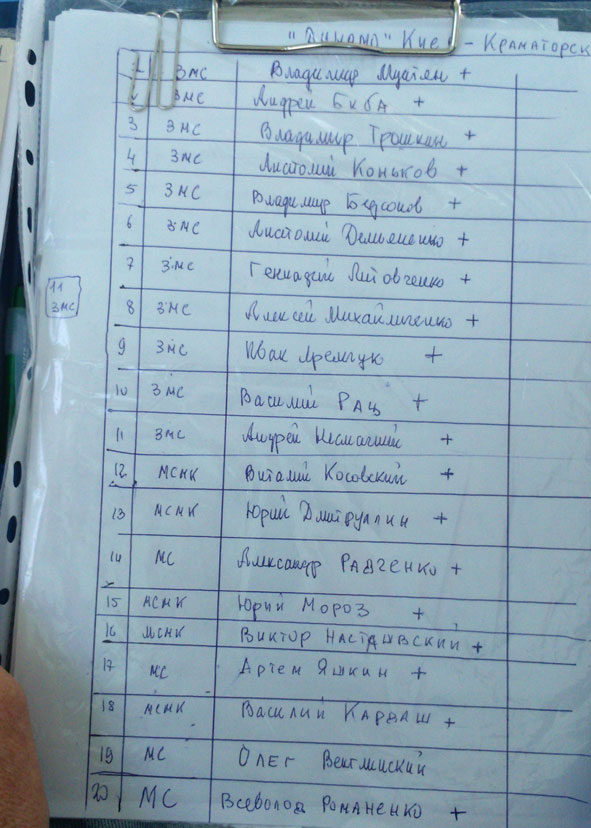 "Динамо" Киев - Краматорск
1 ЗМС Владимир Мунтян +
2 ЗМС Андрей Биба +
3 ЗМС Владимир Трошкин +
4 ЗМС Анатолий Коньков +
5 ЗМС Владимир Бессонов +
6 ЗМС Анатолий Демьяненко +
7 ЗМС Геннадий Литовченко +
11 ЗМС
8 ЗМС Алексей Михайличенко +
9 ЗМС Иван Яремчук +
10 ЗМС Василий Рац +
11 ЗМС Андрей Несмачний +
12 МСМК Виталий Косовский +
13 МСМК Юрий Дмитруллин +
14 МС Александр Радченко +
15 МСМК Юрий Мороз +
16 МСМК Виктор Насташвский +
17 МС Артем Яшкин +
18 МСМК Василий Кардаш +
19 МС Олег Венглинский
20 МС Всеволод Романенко +